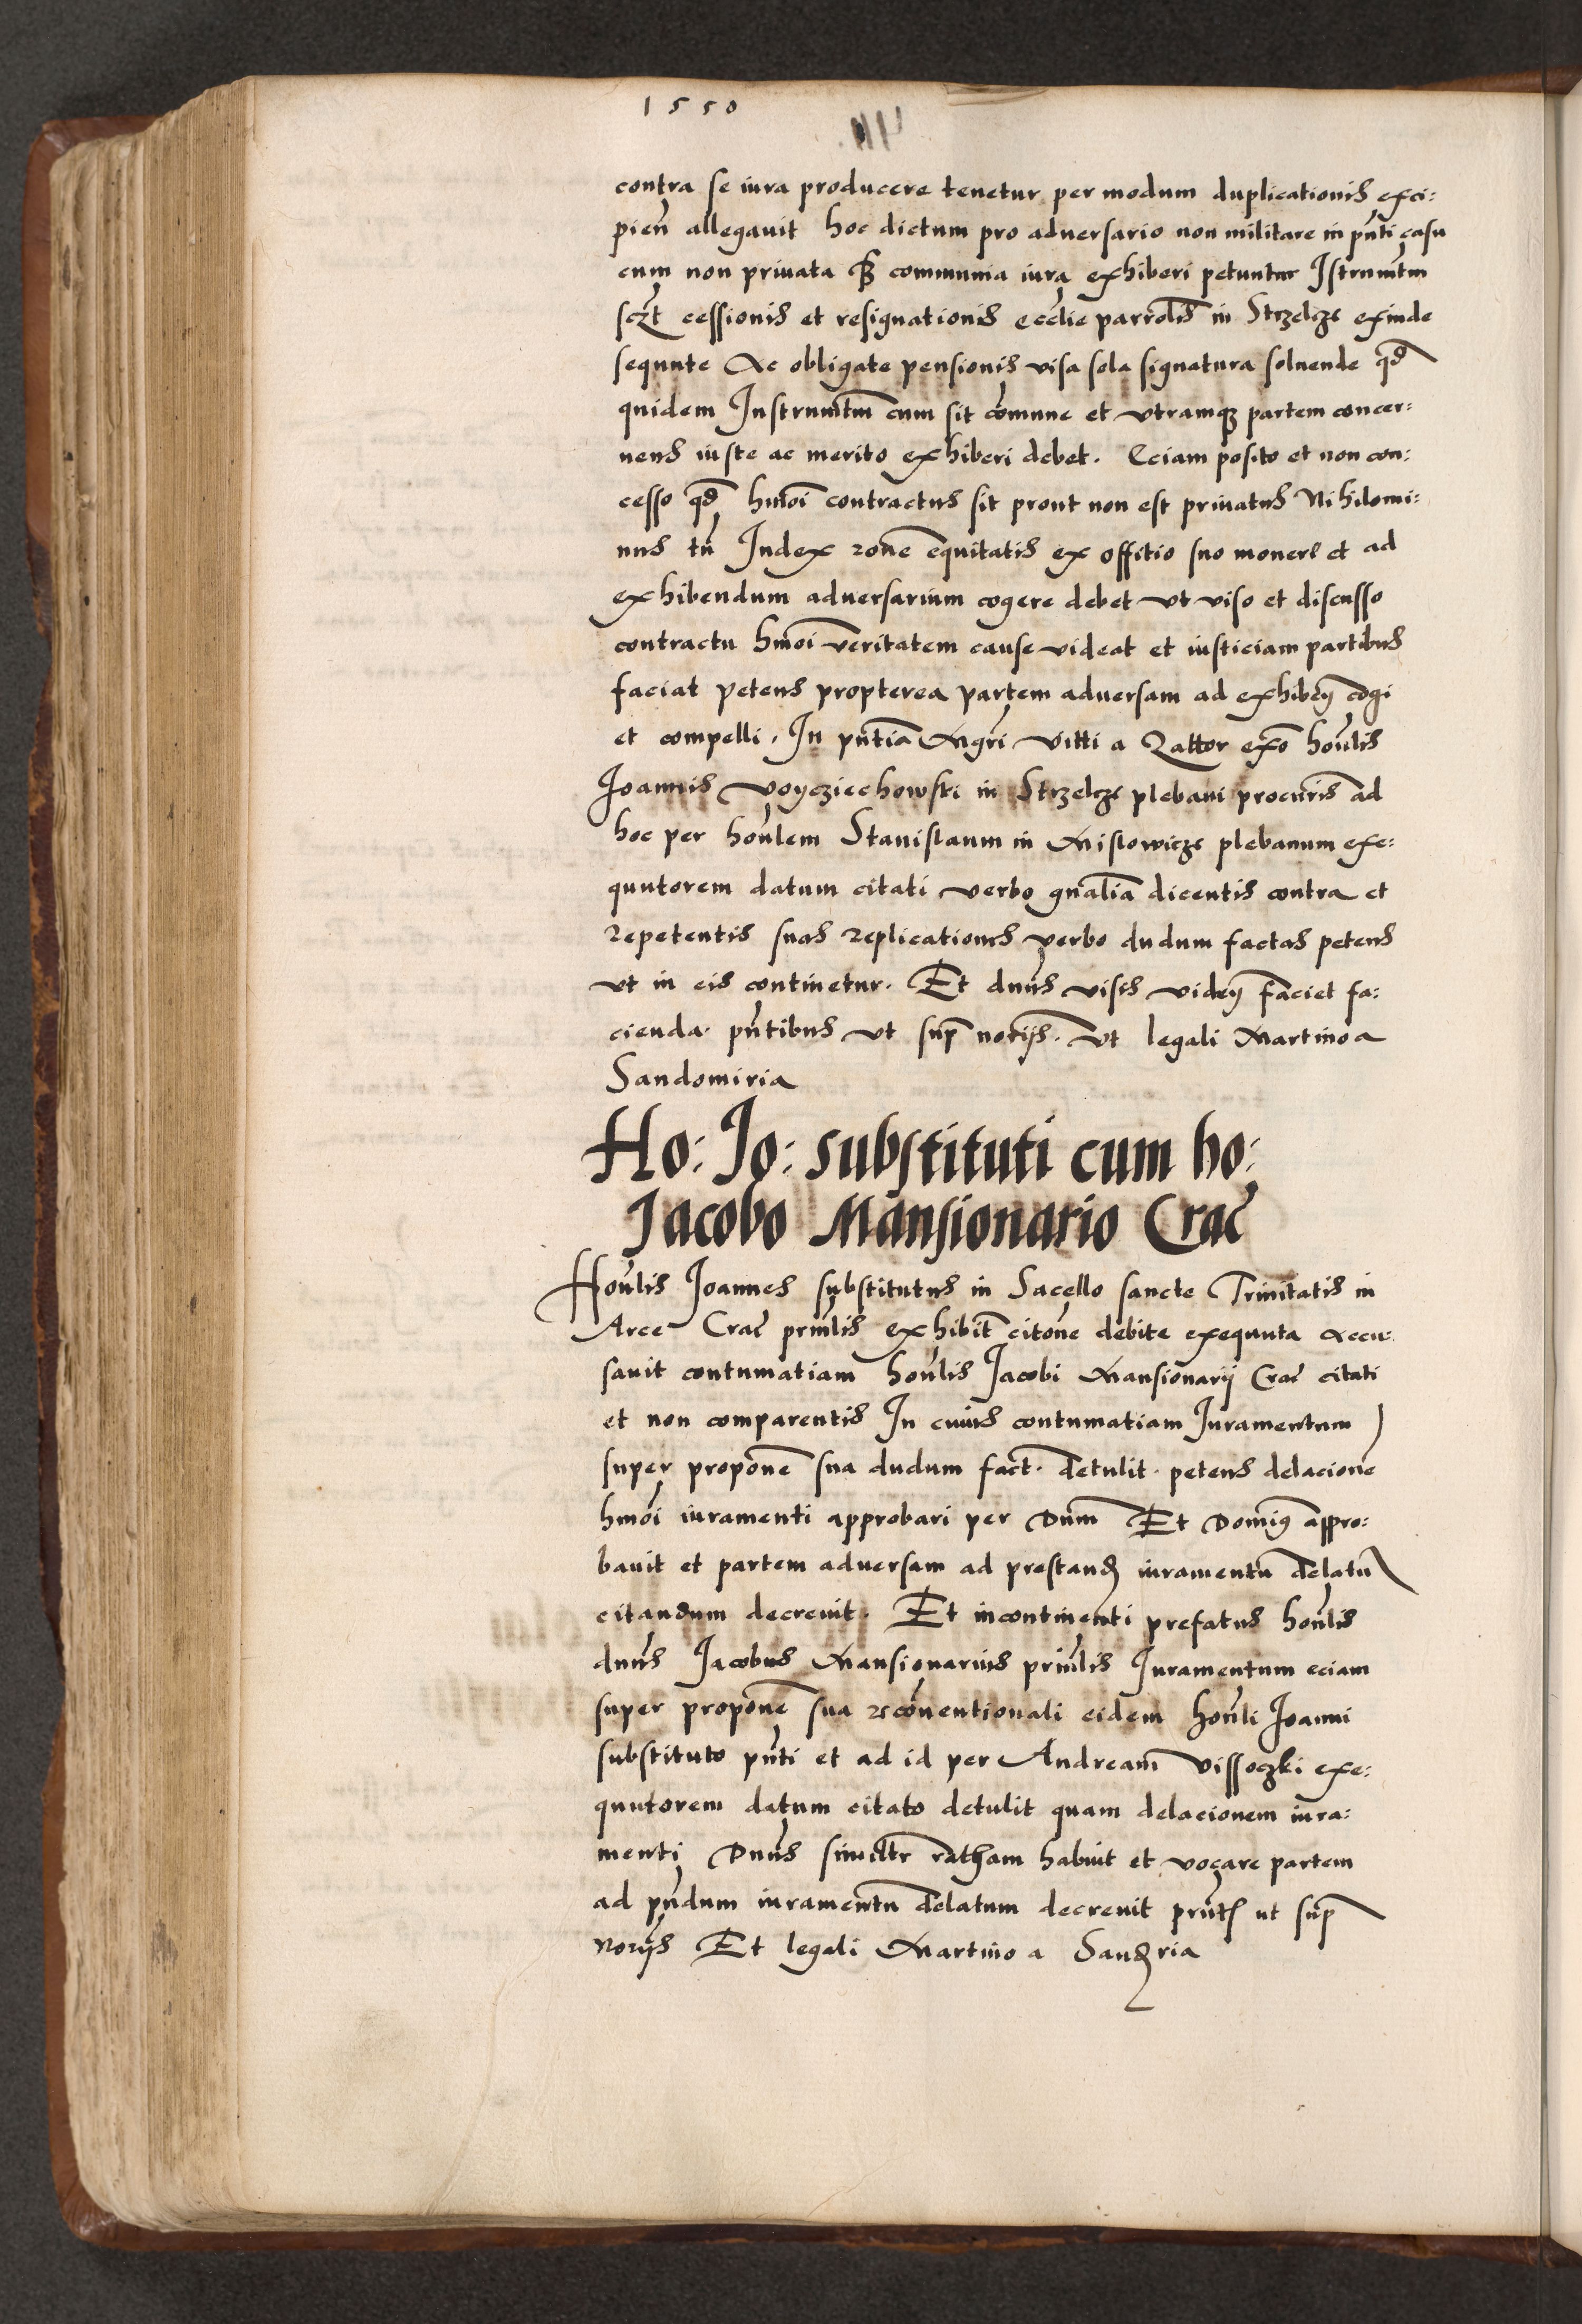 1550
contra se iura producere tenetur per modum duplicationis exci:
pien̄ allegauit hoc dictum pro aduersario non militare in pn̄ti casu
cum non priuata sꝫ communia iura exhiberi petuntur Istrumn̄tm
sczt̄ cessionis et resignationis eccl̄ie parrol̄is in Strzelcze exinde
sequute Ac obligate pensionis visa sola signatura soluende qd̄
quidem Instrumt̄m cum sit cōmune et vtramqꝫ partem concer:
nens iuste ac merito exhiberi debet. Eciam posito et non con:
cesso qd̄ hmōi contractus sit prout non est priuatus Nihilomi:
nus tn̄ Iudex rōne equitatis ex offitio suo moueri et ad
exhibendum aduersarium cogere debet vt viso et discusso
contractu hmōi veritatem cause videat et iusticiam partibus
faciat petens propterea partem aduersam ad exhibeꝫ cogi
et compelli. In pn̄tia Mgr̄i Vitti a Zattor exo honl̄is
Joannis Voyciechowski in Strzelcze plebani procur̄is ad
hoc per honl̄em Stanislaum in Mislowicze plebanum exe:
quutorem datum citati verbo gnāl̄ia dicentis contra et
repetentis suas replicationes verbo dudum factas petens
vt in eis continetur. Et dnn̄s visis videꝫ faciet fa:
cienda. pn̄tibus vt sup̄ notijs. Vt legali Martino a
Sandomiria
Ho: Jo: substituti cum ho:
Jacobo Mansionario Crac̄
Honl̄is Joannes substitutus in Sacello sancte Trinitatis in
Arce Crac̄ prin̄lis exhibit̄ citōne debite exequuta accu:
sauit contumatiam honl̄is Jacobi Mansionarij Crac̄ citati
et non comparentis In cuius contumatiam Iuramentum
super propōne sua dudum fact. detulit. petens delacione
hmōi iuramenti approbari per Dnm̄ Et Domin⁹ appro:
bauit et partem aduersam ad prestanꝺ iuramentū delatū
citandum decreuit. Et incontinenti prefatus honl̄is
dnn̄s Jacobus Mansionarius prin̄lis Iuramentum eciam
super propōne sua recōnuentionali eidem honl̄i Joanni
substituto pn̄ti et ad id per Andream Vissoczki exe:
quutorem datum citato detulit quam delacionem iura:
menti Dnn̄s similtr̄ ratham habuit et vocare partem
ad pn̄dum iuramentū delatum decreuit prn̄ts ut sup̄
norijs Et legali Martino a Sanꝺria